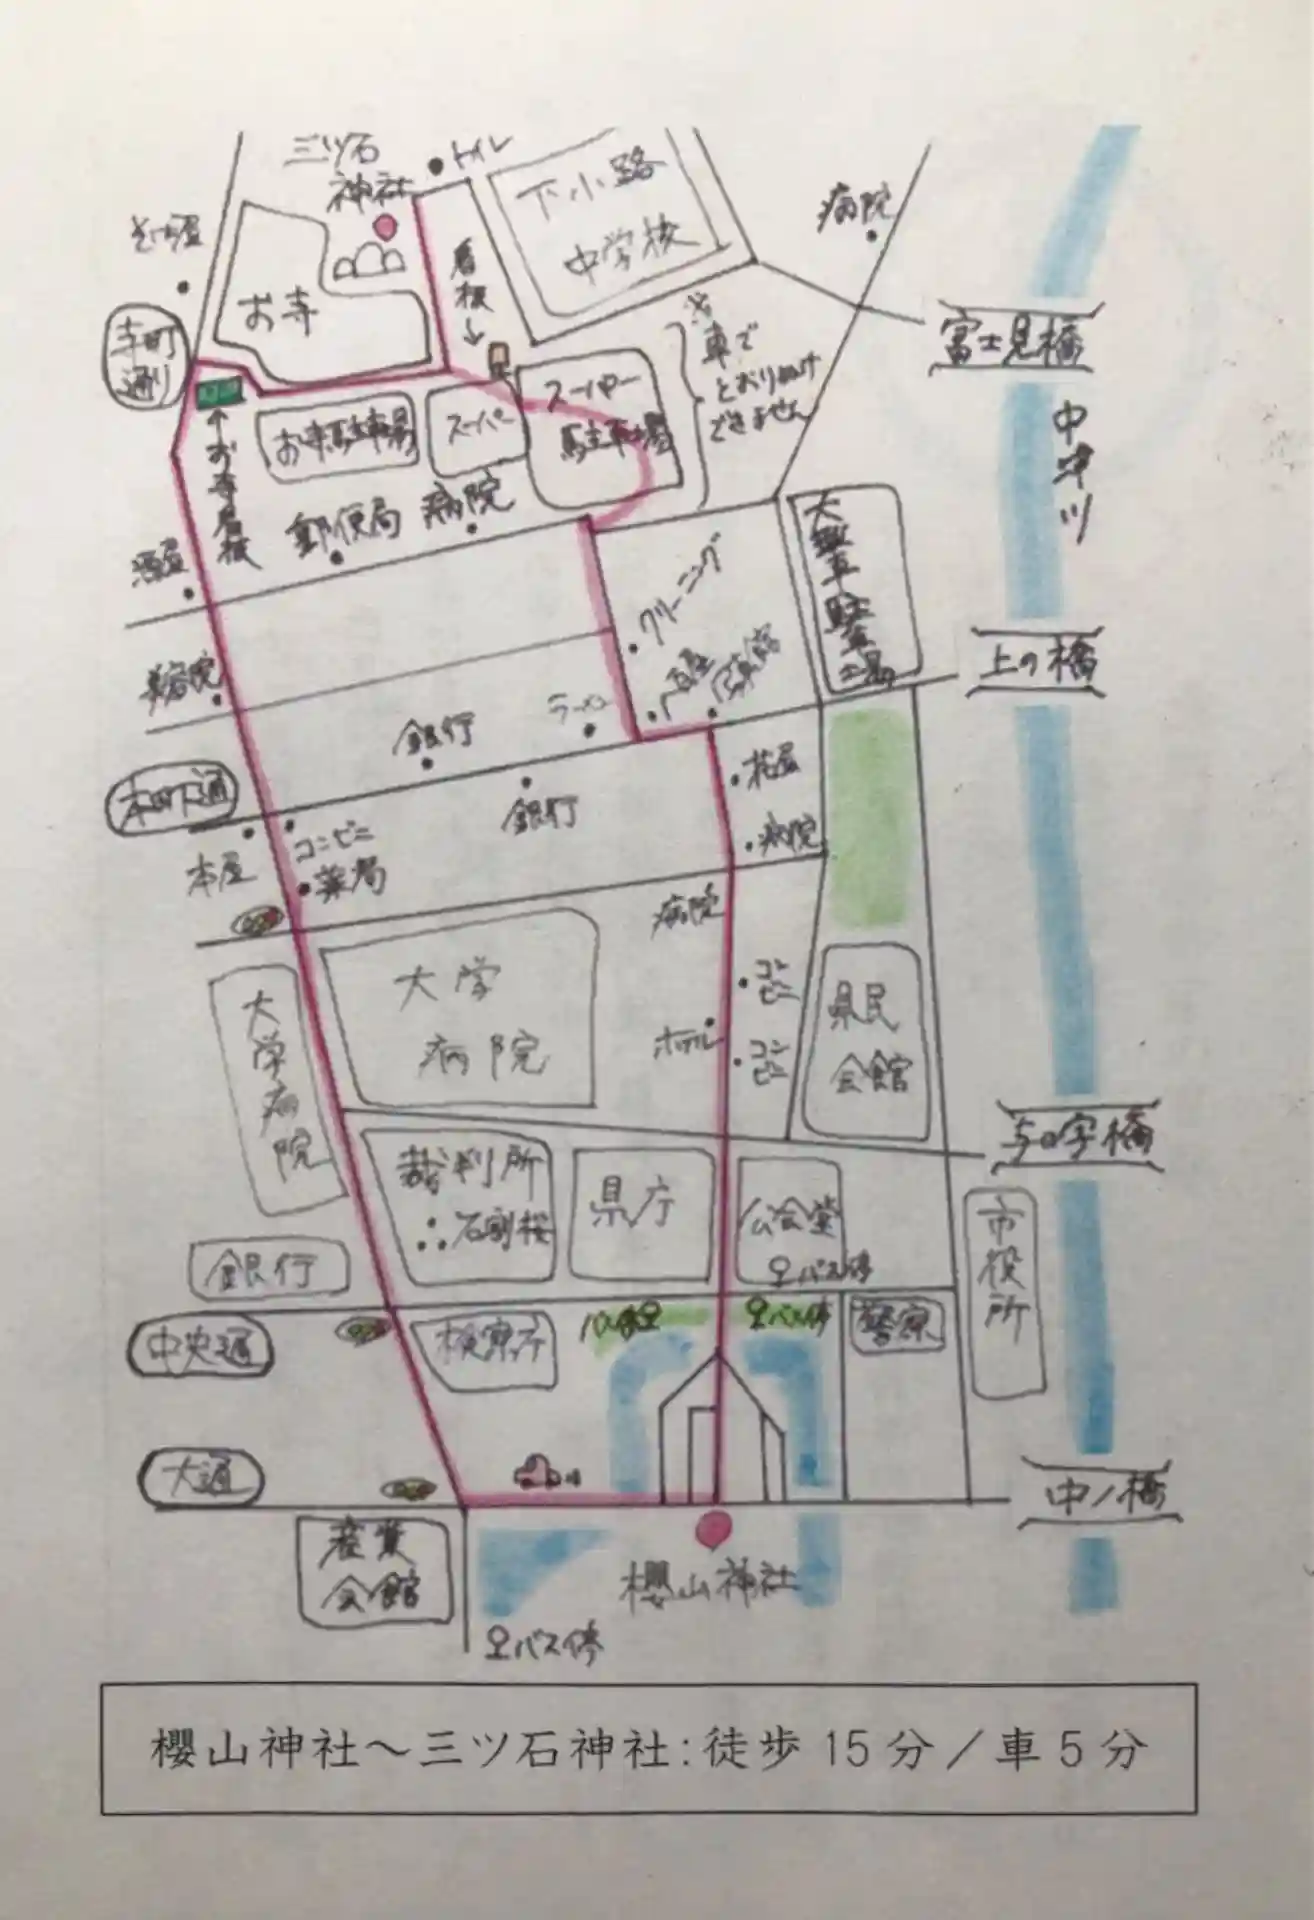 三ツ石
神社
トイレ
下小路
中学校
病院
そば屋
お寺
看板
↓
寺町
通り
富士見橋
※
車で
とおりぬけ
できません
スーパー
駐車場
スーパー
お寺駐車場
↑お寺看板
中津川
郵便局
病院
酒屋
大型車駐車場
クリーニング
八百屋
写真館
上の橋
美容院
ラーメン
銀行
本町通
銀行
花屋
病院
コンビニ
薬局
本屋
病院
大学
病院
コン
ビニ
ホテル
コン
ビニ
県民
会館
大学病院
与の字橋
裁判所
石割桜
県庁
公会堂
バス停
市役所
銀行
中央通
検察庁
バス停
バス停
警察
大通
中ノ橋
産業
会館
櫻山神社
バス停
櫻山神社～三ツ石神社:徒歩 15 分／車 5 分